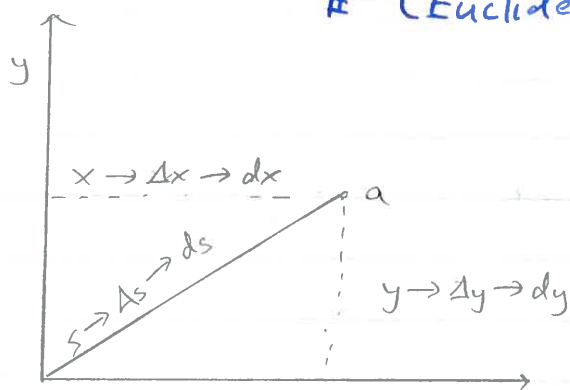 (Euclide
y
x → Δx → dx
a
s → Δs → ds
y → Δy → dy